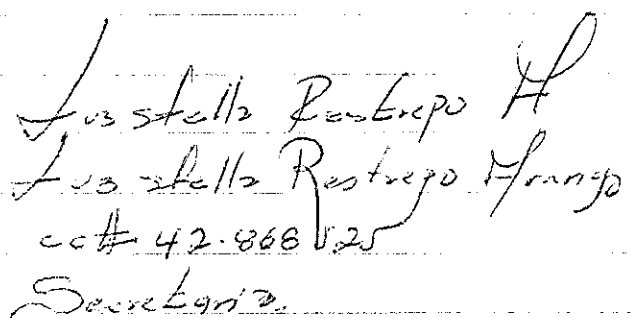 Luz stella Restrepo A
Luz stella Restrepo Arango
cc# 42.868
Secretaria